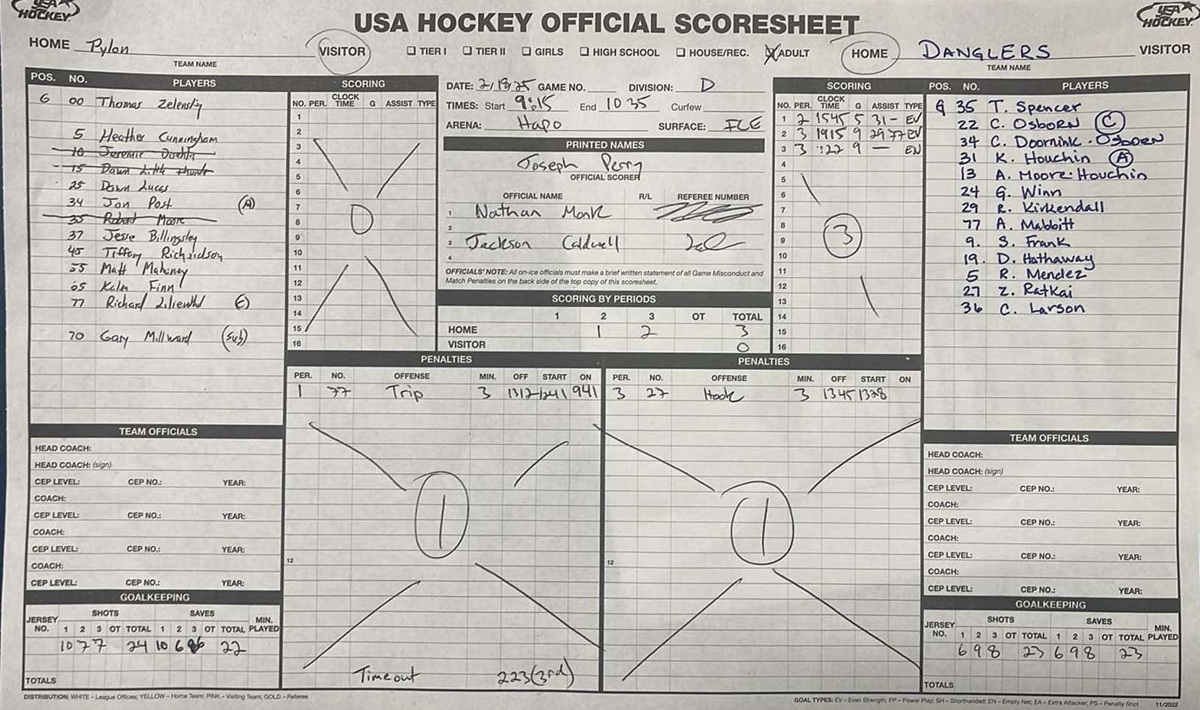 USA HOCKEY
USA HOCKEY OFFICIAL SCORESHEET
USA HOCKEY
HOME Pylon VISITOR
TEAM NAME
☐ TIER I ☐ TIER II ☐ GIRLS ☐ HIGH SCHOOL ☐ HOUSE/REC. ☒ ADULT
HOME DANGLERS VISITOR
TEAM NAME
POS. NO. PLAYERS
G 00 Thomas Zelensky
5 Heather Cunningham
10 Jeremie
15 Dawn
25 Dawn Lucas
34 Jon Post (A)
35 Robert Moore
37 Jesse Billingsley
45 Tiffany Richardson
55 Matt Mahoney
65 Kalen Finn
77 Richard Lilienthal (C)
70 Gary Millward (sub)
SCORING
NO. PER. CLOCK TIME G ASSIST TYPE
1
2
3
4
5
6
7
8
9
10
11
12
13
14
15
16
0
DATE: 2/18/25 GAME NO. DIVISION: D
TIMES: Start 9:15 End 10 35 Curfew
ARENA: Hapo SURFACE: ICE
PRINTED NAMES
Joseph Perry
OFFICIAL SCORER
OFFICIAL NAME R/L REFEREE NUMBER
1 Nathan Monk
2
3 Jackson Caldwell
4
OFFICIALS' NOTE: All on-ice officials must make a brief written statement of all Game Misconduct and
Match Penalties on the back side of the top copy of this scoresheet.
SCORING BY PERIODS
1 2 3 OT TOTAL
HOME 1 2 3
VISITOR 0
SCORING
NO. PER. CLOCK TIME G ASSIST TYPE
1 2 1545 5 31 - EV
2 3 1915 9 29 77 EV
3 3 :22 9 — EN
4
5
6
7
8
9
10
11
12
13
14
15
16
3
POS. NO. PLAYERS
G 35 T. Spencer
22 C. OSBORN (C)
34 C. Doornink-Osborn
31 K. Houchin (A)
13 A. Moore-Houchin
24 G. Winn
29 R. Kirkendall
77 A. Mabbitt
9. S. Frank
19. D. Hathaway
5 R. Mendez
27 Z. Ratkai
36 C. Larson
PENALTIES
PER. NO. OFFENSE MIN. OFF START ON
1 77 Trip 3 1312 1241 941
12
1
Timeout 223 (3rd)
PENALTIES
PER. NO. OFFENSE MIN. OFF START ON
3 27 Hook 3 1345 1328
12
1
TEAM OFFICIALS
HEAD COACH:
HEAD COACH: (sign)
CEP LEVEL: CEP NO.: YEAR:
COACH:
CEP LEVEL: CEP NO.: YEAR:
COACH:
CEP LEVEL: CEP NO.: YEAR:
COACH:
CEP LEVEL: CEP NO.: YEAR:
GOALKEEPING
JERSEY NO. SHOTS 1 2 3 OT TOTAL SAVES 1 2 3 OT TOTAL MIN. PLAYED
10 7 7 24 10 6 6 22
TOTALS
TEAM OFFICIALS
HEAD COACH:
HEAD COACH: (sign)
CEP LEVEL: CEP NO.: YEAR:
COACH:
CEP LEVEL: CEP NO.: YEAR:
COACH:
CEP LEVEL: CEP NO.: YEAR:
COACH:
CEP LEVEL: CEP NO.: YEAR:
GOALKEEPING
JERSEY NO. SHOTS 1 2 3 OT TOTAL SAVES 1 2 3 OT TOTAL MIN. PLAYED
6 9 8 23 6 9 8 23
TOTALS
DISTRIBUTION: WHITE – League Offices; YELLOW – Home Team; PINK – Visiting Team; GOLD – Referee
GOAL TYPES: EV – Even Strength; PP – Power Play; SH – Shorthanded; EN – Empty Net; EA – Extra Attacker; PS – Penalty Shot 11/2022